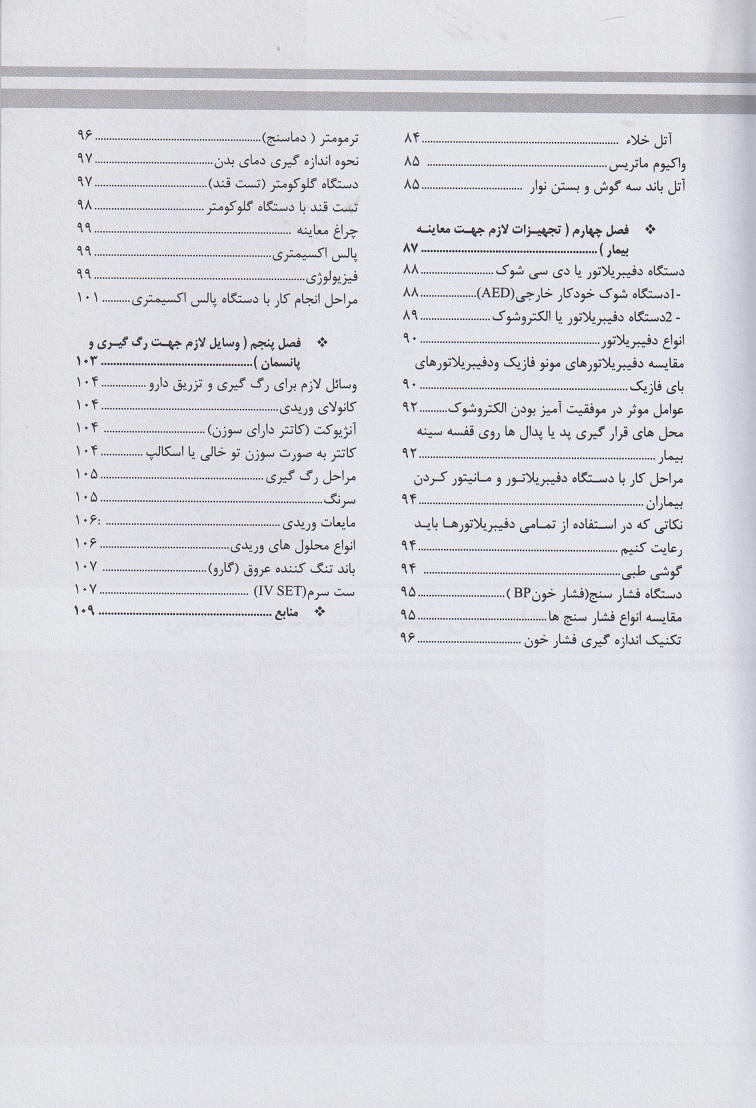 آتل خلاء ........ ۸۴
واکیوم ماتریس ........ ۸۵
آتل باند سه گوش و بستن نوار ........ ۸۵
❖ فصل چهارم ( تجهیزات لازم جهت معاینه
بیمار ) ........ ۸۷
دستگاه دفیبریلاتور یا دی سی شوک ........ ۸۸
-1دستگاه شوک خودکار خارجی(AED) ........ ۸۸
- 2دستگاه دفیبریلاتور یا الکتروشوک ........ ۸۹
انواع دفیبریلاتور ........ ۹۰
مقایسه دفیبریلاتورهای مونو فازیک ودفیبریلاتورهای
بای فازیک ........ ۹۰
عوامل موثر در موفقیت آمیز بودن الکتروشوک ........ ۹۲
محل های قرار گیری پد یا پدال ها روی قفسه سینه
بیمار ........ ۹۲
مراحل کار با دستگاه دفیبریلاتور و مانیتور کردن
بیماران ........ ۹۴
نکاتی که در استفاده از تمامی دفیبریلاتورها باید
رعایت کنیم ........ ۹۴
گوشی طبی ........ ۹۴
دستگاه فشار سنج(فشار خونBP ) ........ ۹۵
مقایسه انواع فشار سنج ها ........ ۹۵
تکنیک اندازه گیری فشار خون ........ ۹۶
ترمومتر ( دماسنج) ........ ۹۶
نحوه اندازه گیری دمای بدن ........ ۹۷
دستگاه گلوکومتر (تست قند) ........ ۹۷
تست قند با دستگاه گلوکومتر ........ ۹۸
چراغ معاینه ........ ۹۹
پالس اکسیمتری ........ ۹۹
فیزیولوژی ........ ۹۹
مراحل انجام کار با دستگاه پالس اکسیمتری ........ ۱۰۱
❖ فصل پنجم ( وسایل لازم جهت رگ گیری و
پانسمان ) ........ ۱۰۳
وسائل لازم برای رگ گیری و تزریق دارو ........ ۱۰۴
کانولای وریدی ........ ۱۰۴
آنژیوکت (کاتتر دارای سوزن) ........ ۱۰۴
کاتتر به صورت سوزن تو خالی یا اسکالپ ........ ۱۰۴
مراحل رگ گیری ........ ۱۰۵
سرنگ ........ ۱۰۵
مایعات وریدی ........ :۱۰۶
انواع محلول های وریدی ........ ۱۰۶
باند تنگ کننده عروق (گارو) ........ ۱۰۷
ست سرم(IV SET) ........ ۱۰۷
❖ منابع ........ ۱۰۹